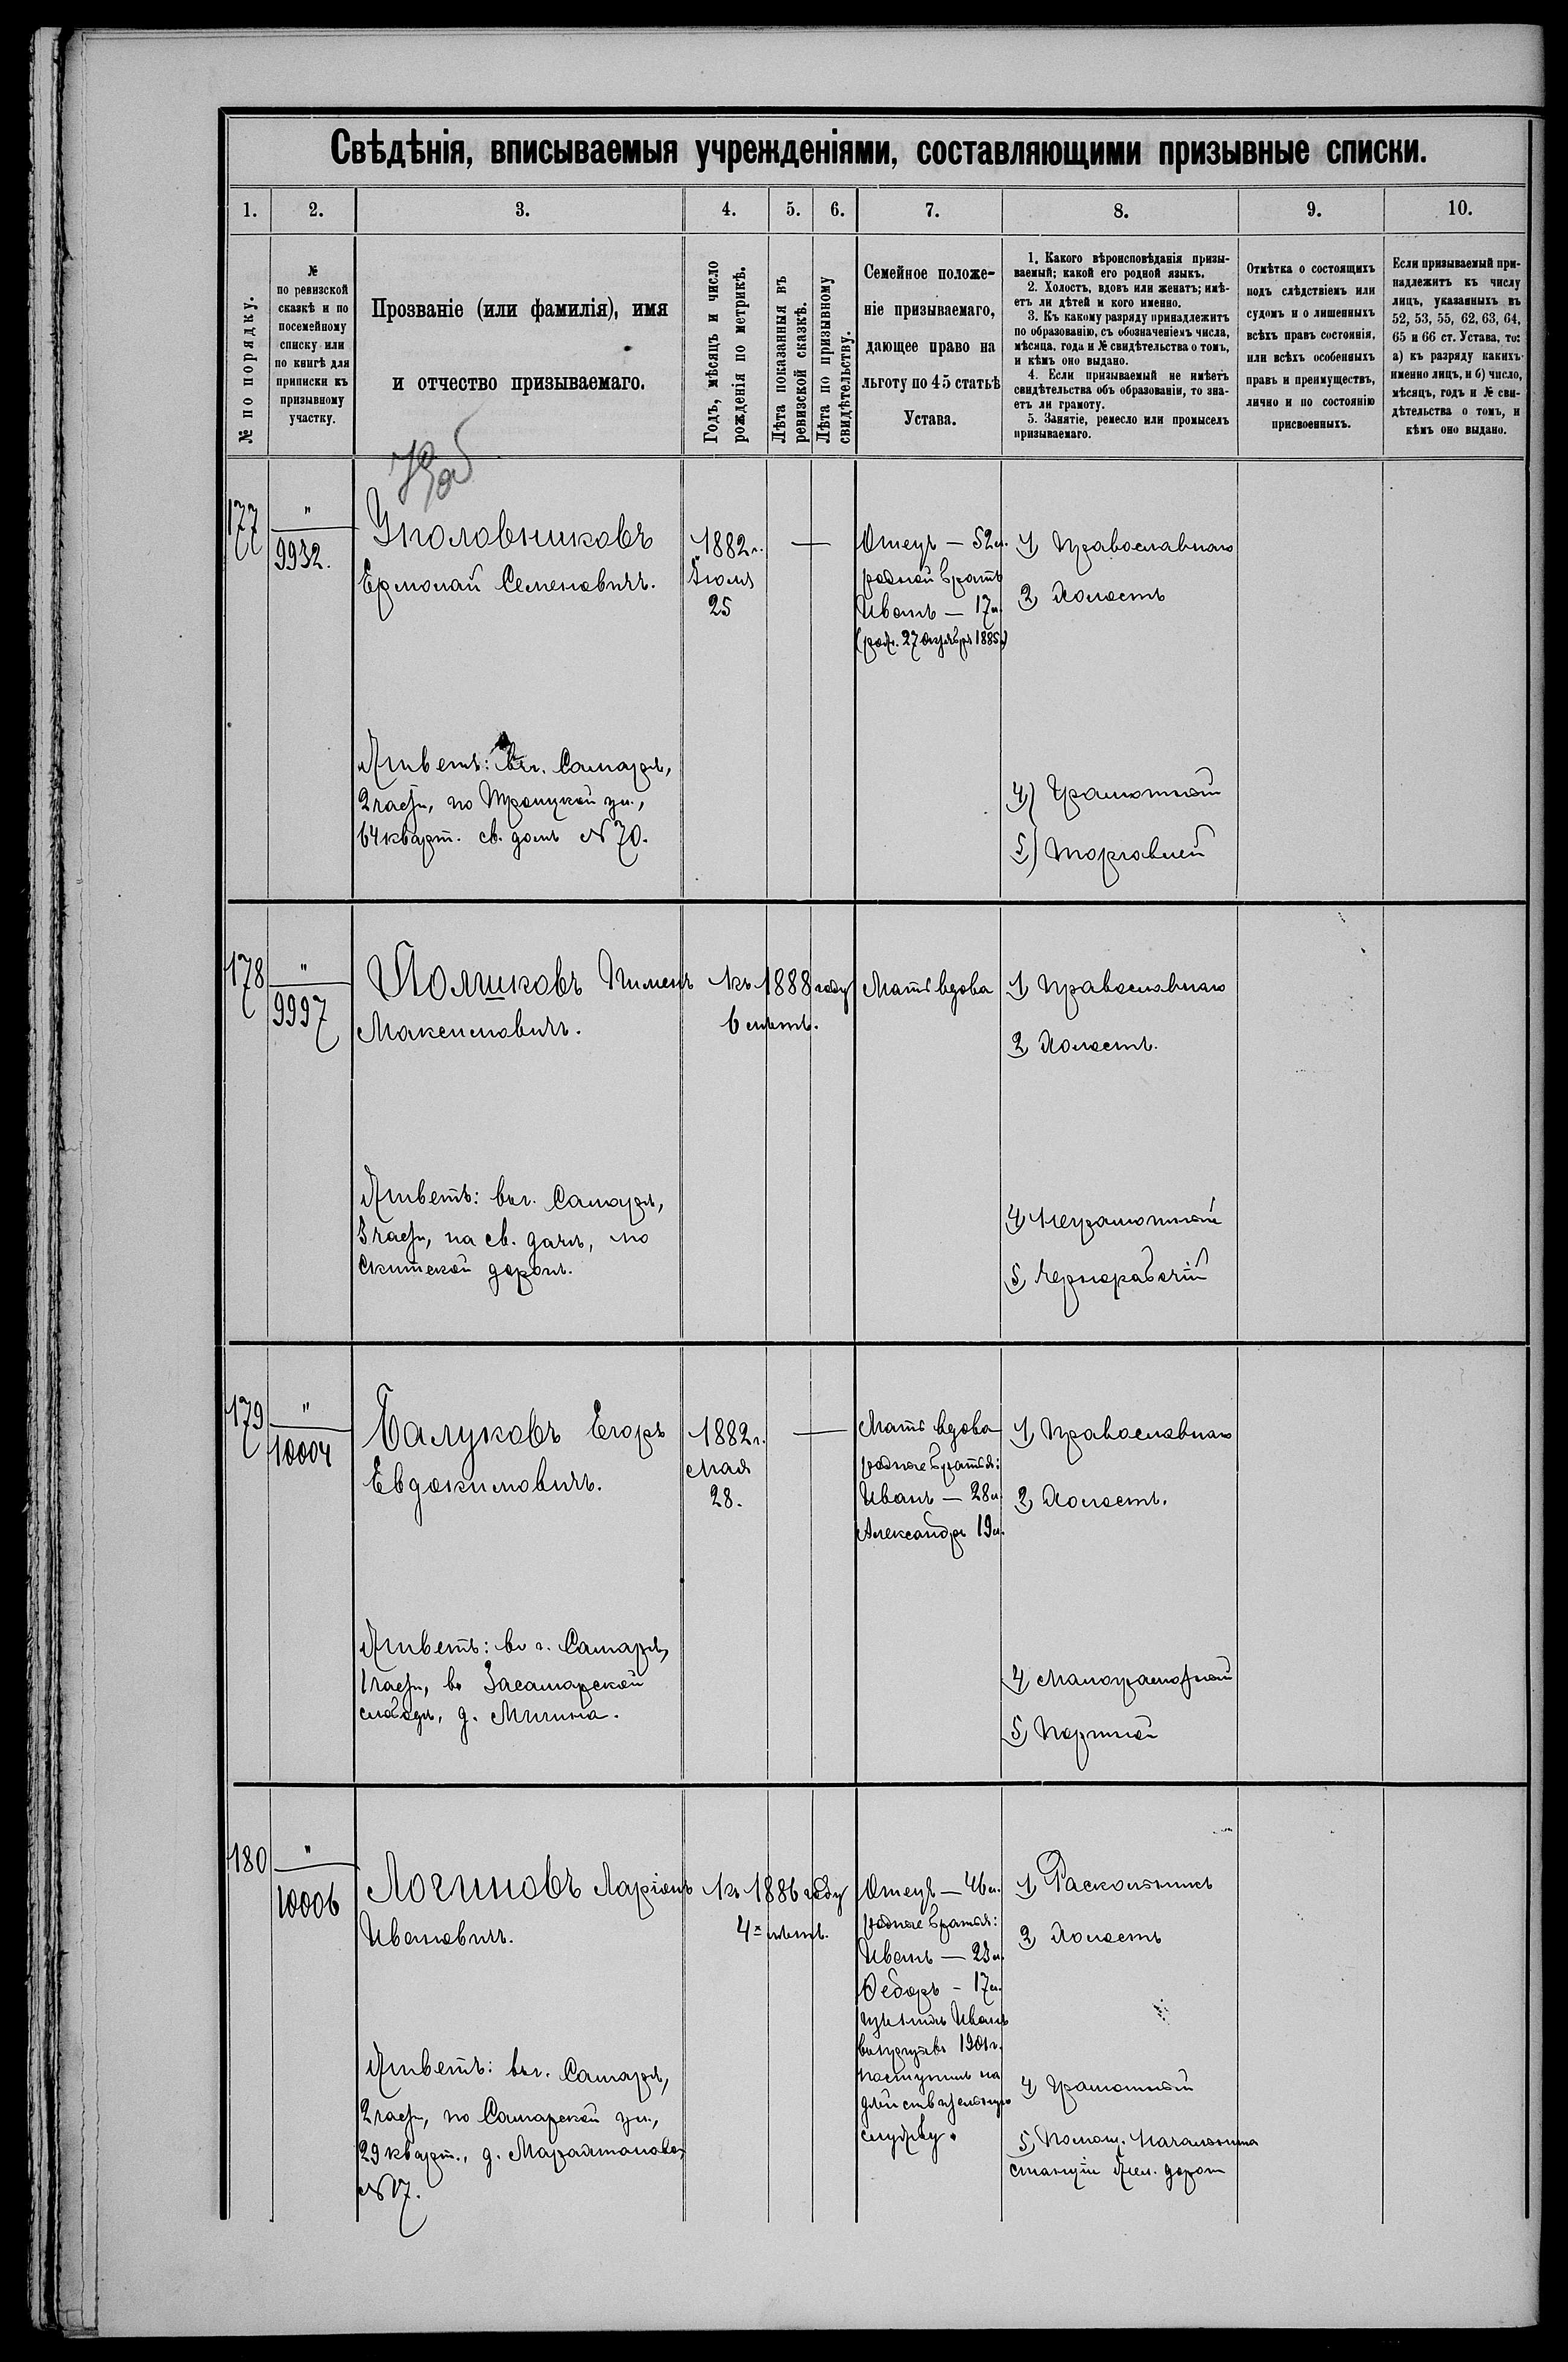 Свѣдѣнія, вписываемыя учрежденіями, составляющими призывные списки.
1. 2. 3. 4. 5. 6. 7. 8. 9. 10.
№ по порядку.
№
по ревизской
сказкѣ и по
посемейному
списку или
по книгѣ для
приписки къ
призывному
участку.
Прозваніе (или фамилія), имя
и отчество призываемаго.
Годъ, мѣсяцъ и число
рожденія по метрикѣ.
Лѣта показанныя въ
ревизской сказкѣ.
Лѣта по призывному
свидѣтельству.
Семейное положе-
ніе призываемаго,
дающее право на
льготу по 45 статьѣ
Устава.
1. Какого вѣроисповѣданія призы-
ваемый; какой его родной языкъ.
2. Холостъ, вдовъ или женатъ; имѣ-
етъ ли дѣтей и кого именно.
3. Къ какому разряду принадлежитъ
по образованію, съ обозначеніемъ числа,
мѣсяца, года и № свидѣтельства о томъ,
и кѣмъ оно выдано.
4. Если призываемый не имѣетъ
свидѣтельства объ образованіи, то зна-
етъ ли грамоту.
5. Занятіе, ремесло или промыселъ
призываемаго.
Отмѣтка о состоящихъ
подъ слѣдствіемъ или
судомъ и о лишенныхъ
всѣхъ правъ состоянія,
или всѣхъ особенныхъ
правъ и преимуществъ,
лично и по состоянію
присвоенныхъ.
Если призываемый при-
надлежитъ къ числу
лицъ, указанныхъ въ
52, 53, 55, 62, 63, 64,
65 и 66 ст. Устава, то:
а) къ разряду какихъ
именно лицъ, и б) число,
мѣсяцъ, годъ и № сви-
дѣтельства о томъ, и
кѣмъ оно выдано.
177
"
9932.
Уполовниковъ
Ермолай Семеновичъ.
Живетъ: въ г. Самарѣ,
2 части, по Троицкой ул.,
64 кварт. св. домъ № 70.
1882 г.
Іюля
25
—
Отецъ — 52 л.
родной братъ
Иванъ — 17 л.
(род. 27 октября 1885 г.)
1) Православнаго
2) Холостъ
4) Грамотный
5) Торговлей
178
"
9997
Полшковъ Пименъ
Максимовичъ.
Живетъ: въ г. Самарѣ,
3 части, на св. дачѣ, по
Скитской дорогѣ.
Къ 1888 году
6 лѣтъ.
Мать вдова
1) Православнаго
2) Холостъ.
4) Неграмотный
5) Чернорабочій
179
"
10004
Балуковъ Егоръ
Евдокимовичъ.
Живетъ: въ г. Самарѣ,
1 части, въ Засамарской
слободѣ, д. Мигина.
1882 г.
Мая
28.
—
Мать вдова
родные братья:
Иванъ — 28 л.
Александръ 19 л.
1) Православнаго
2) Холостъ.
4) Малограмотный
5) Портной
180
"
10006
Логиновъ Ларіонъ
Ивановичъ.
Живетъ: въ г. Самарѣ,
2 части, по Самарской ул.,
29 кварт., д.
№ 17.
Къ 1886 году
4х лѣтъ.
Отецъ — 46 л.
родные братья:
Иванъ — 23 л.
Ѳедоръ — 17 л.
изъ нихъ Иванъ
въ 1901 г.
поступилъ на
дѣйствительную
службу.
1) Раскольникъ
2) Холостъ
4) Грамотный
5) Помощ. Начальника
станціи Жел. дорог